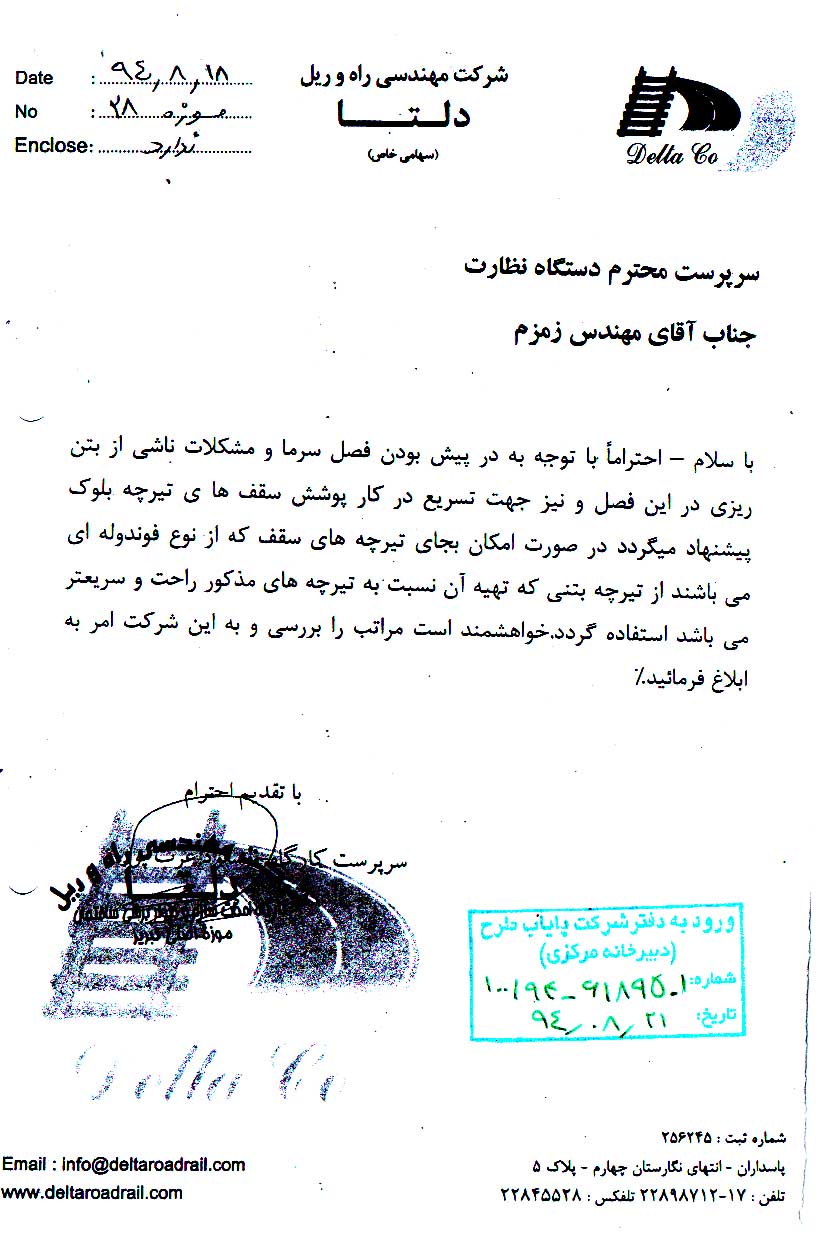 Date : ۹٤٫۸٫۱۸
No : موزه ۲۸
Enclose: ندارد
شرکت مهندسی راه و ریل
دلتا
(سهامی خاص)
Delta Co
سرپرست محترم دستگاه نظارت
جناب آقای مهندس زمزم
با سلام – احتراماً با توجه به در پیش بودن فصل سرما و مشکلات ناشی از بتن
ریزی در این فصل و نیز جهت تسریع در کار پوشش سقف ها ی تیرچه بلوک
پیشنهاد میگردد در صورت امکان بجای تیرچه های سقف که از نوع فوندوله ای
می باشند از تیرچه بتنی که تهیه آن نسبت به تیرچه های مذکور راحت و سریعتر
می باشد استفاده گردد.خواهشمند است مراتب را بررسی و به این شرکت امر به
ابلاغ فرمائید.٪
با تقدیم احترام
سرپرست کارگاه
مهندسی راه و ریل
دلتا
موزه تبریز
Delta Co
ورود به دفتر شرکت پایاب طرح
(دبیرخانه مرکزی)
شماره:
تاریخ: ۹٤٫۰۸٫۲۱
شماره ثبت : ۲۵۶۲۴۵
پاسداران - انتهای نگارستان چهارم - پلاک ۵
تلفن : ۱۷-۲۲۸۹۸۷۱۲ تلفکس : ۲۲۸۴۵۵۲۸
Email : info@deltaroadrail.com
www.deltaroadrail.com